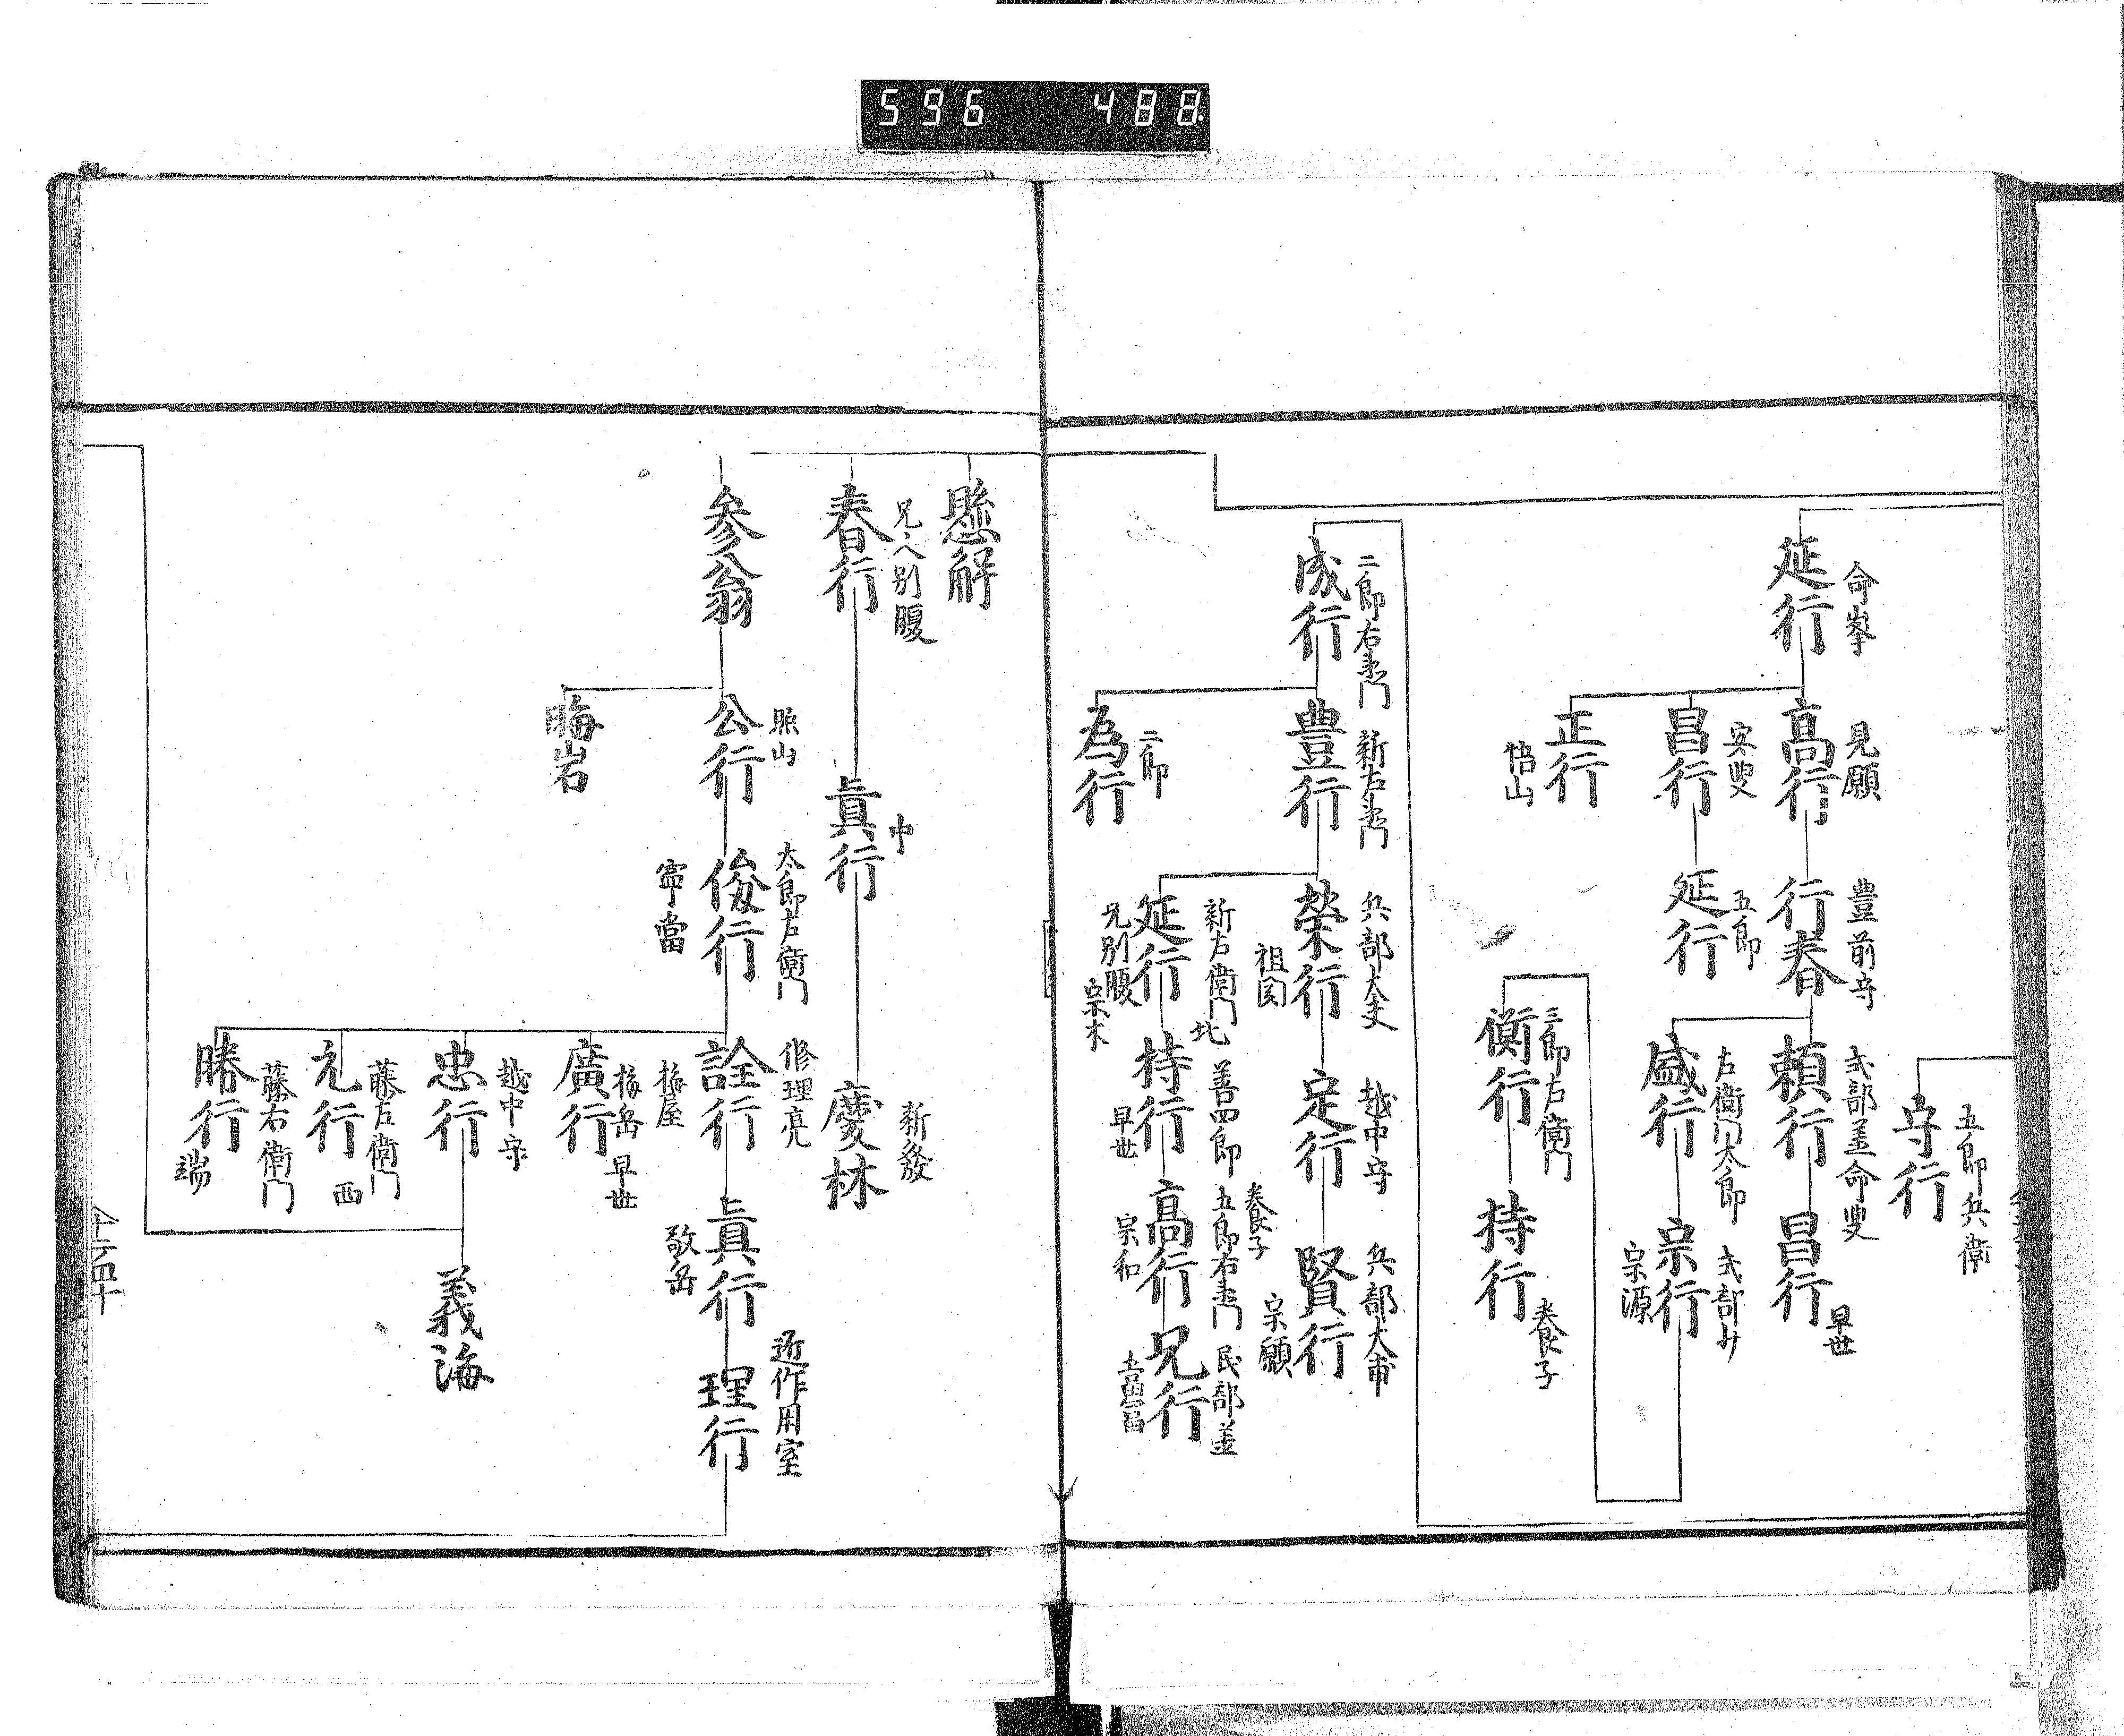 596 488
命峯
延行
見願
高行
安叟
昌行
正行
悟山
豊前守
行春
五郎
延行
五郎兵衛
守行
式部丞命叟
頼行
早世
昌行
左衛門太郎
盛行
式部
宗行
宗源
三郎左衛門
衡行
養子
持行
二郎右衛門
成行
新左衛門
豊行
二郎
為行
兵部大夫
榮行
祖関
越中守
定行
兵部大甫
賢行
宗願
新左衛門 北
延行
兄別腹
宗木
善四郎
持行
早世
養子
五郎右衛門
高行
宗和
民部丞
兄行
懸解
兄人別腹
春行
中
眞行
新發
慶林
参翁
照山
公行
晦岩
太郎左衛門
俊行
寧當
修理亮
詮行
梅屋
眞行
敬岳
近作用室
理行
早世
廣行
越中守
忠行
義海
藤左衛門
元行
西
藤右衛門
勝行
端